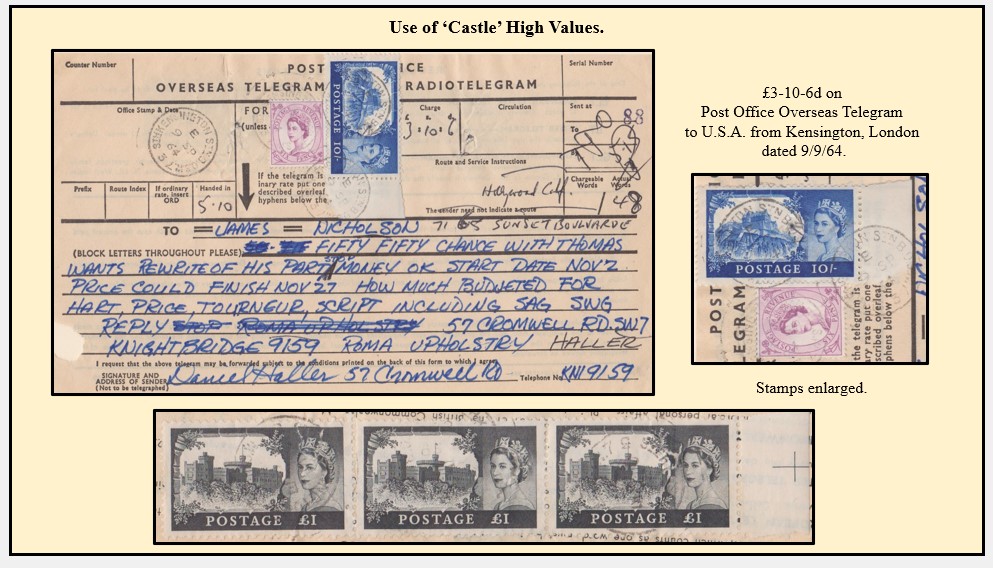 Use of ‘Castle’ High Values.
Counter Number
POST ICE
Serial Number
OVERSEAS TELEGRAM RADIOTELEGRAM
Office Stamp & Date
FOR
(unless
Charge
£ s. d.
3.10.6
Circulation
Sent at
To
POSTAGE 10/-
Route and Service Instructions
If the telegram is
inary rate put one
described overleaf
hyphens below the
Prefix
Route Index
If ordinary
rate, insert
ORD
Handed in
5.10
Hollywood Calif.
The sender need not indicate a route
Chargeable
Words
Actual
Words
148
TO = JAMES = NICHOLSON 7165 SUNSET BOULVARDE
(BLOCK LETTERS THROUGHOUT PLEASE) FIFTY FIFTY CHANCE WITH THOMAS
WANTS REWRITE OF HIS PART STOP MONEY OK START DATE NOV 2
PRICE COULD FINISH NOV 27 HOW MUCH BUDWETED FOR
HART, PRICE, TOURNEUR, SCRIPT INCLUDING SAG SWG
REPLY STOP ROMA UPHOLSTRY 57 CROMWELL RD. SW7
KNIGHTBRIDGE 9159 ROMA UPHOLSTRY HALLER
I request that the above telegram may be forwarded subject to the conditions printed on the back of this form to which I agree.
SIGNATURE AND
ADDRESS OF SENDER
(Not to be telegraphed)
Daniel Haller 57 Cromwell Rd
Telephone No.
KNI 9159
£3-10-6d on
Post Office Overseas Telegram
to U.S.A. from Kensington, London
dated 9/9/64.
POSTAGE 10/-
POST
LEGRAM
the telegram is
ary rate put one
scribed overleaf
hens below the
Stamps enlarged.
POSTAGE £1
POSTAGE £1
POSTAGE £1